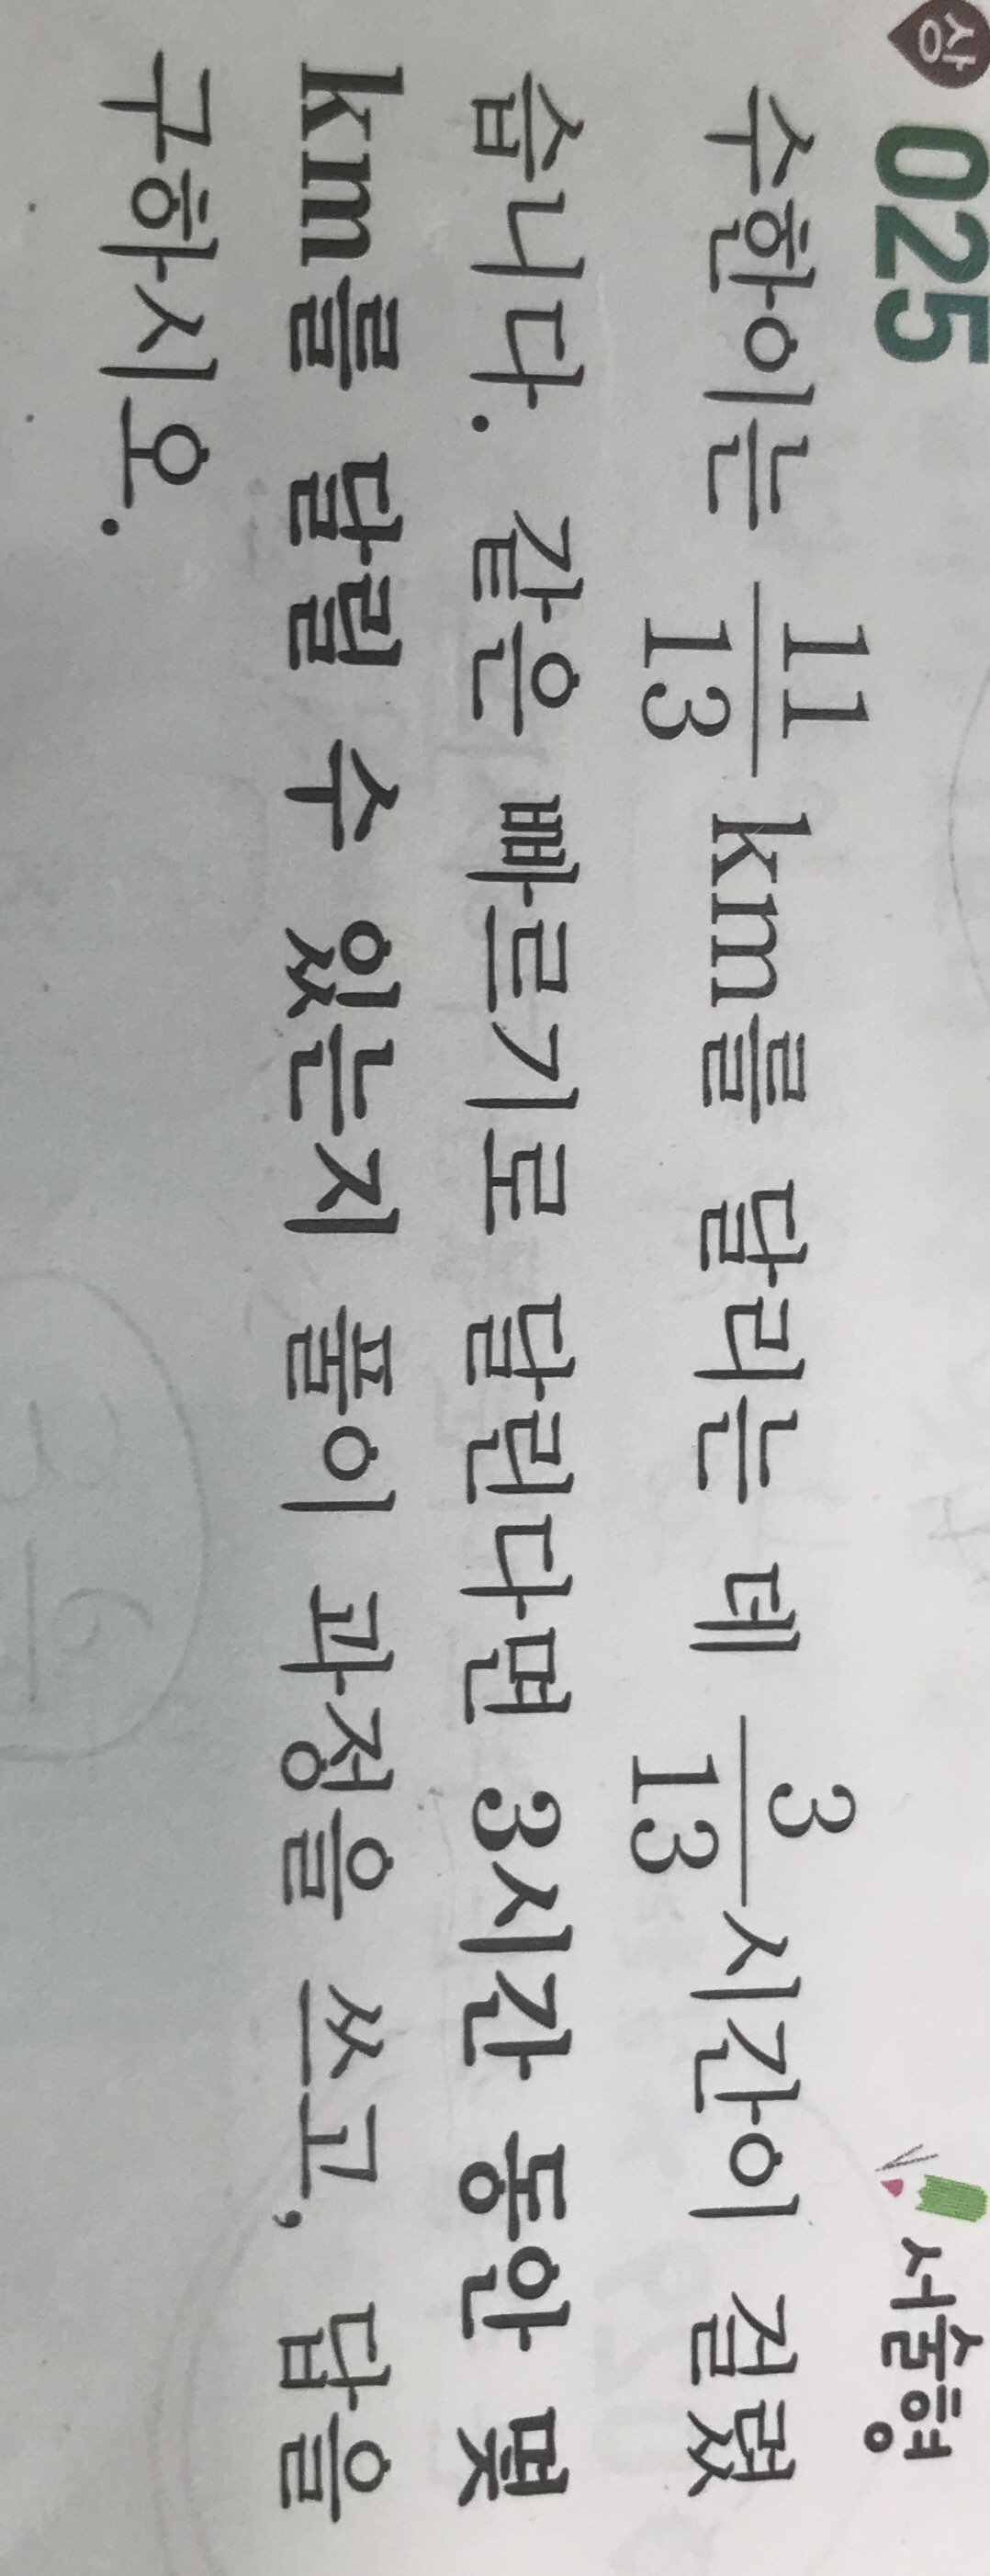 상 025 서술형
수한이는 11/13 km를 달리는 데 3/13 시간이 걸렸
습니다. 같은 빠르기로 달린다면 3시간 동안 몇
km를 달릴 수 있는지 풀이 과정을 쓰고, 답을
구하시오.